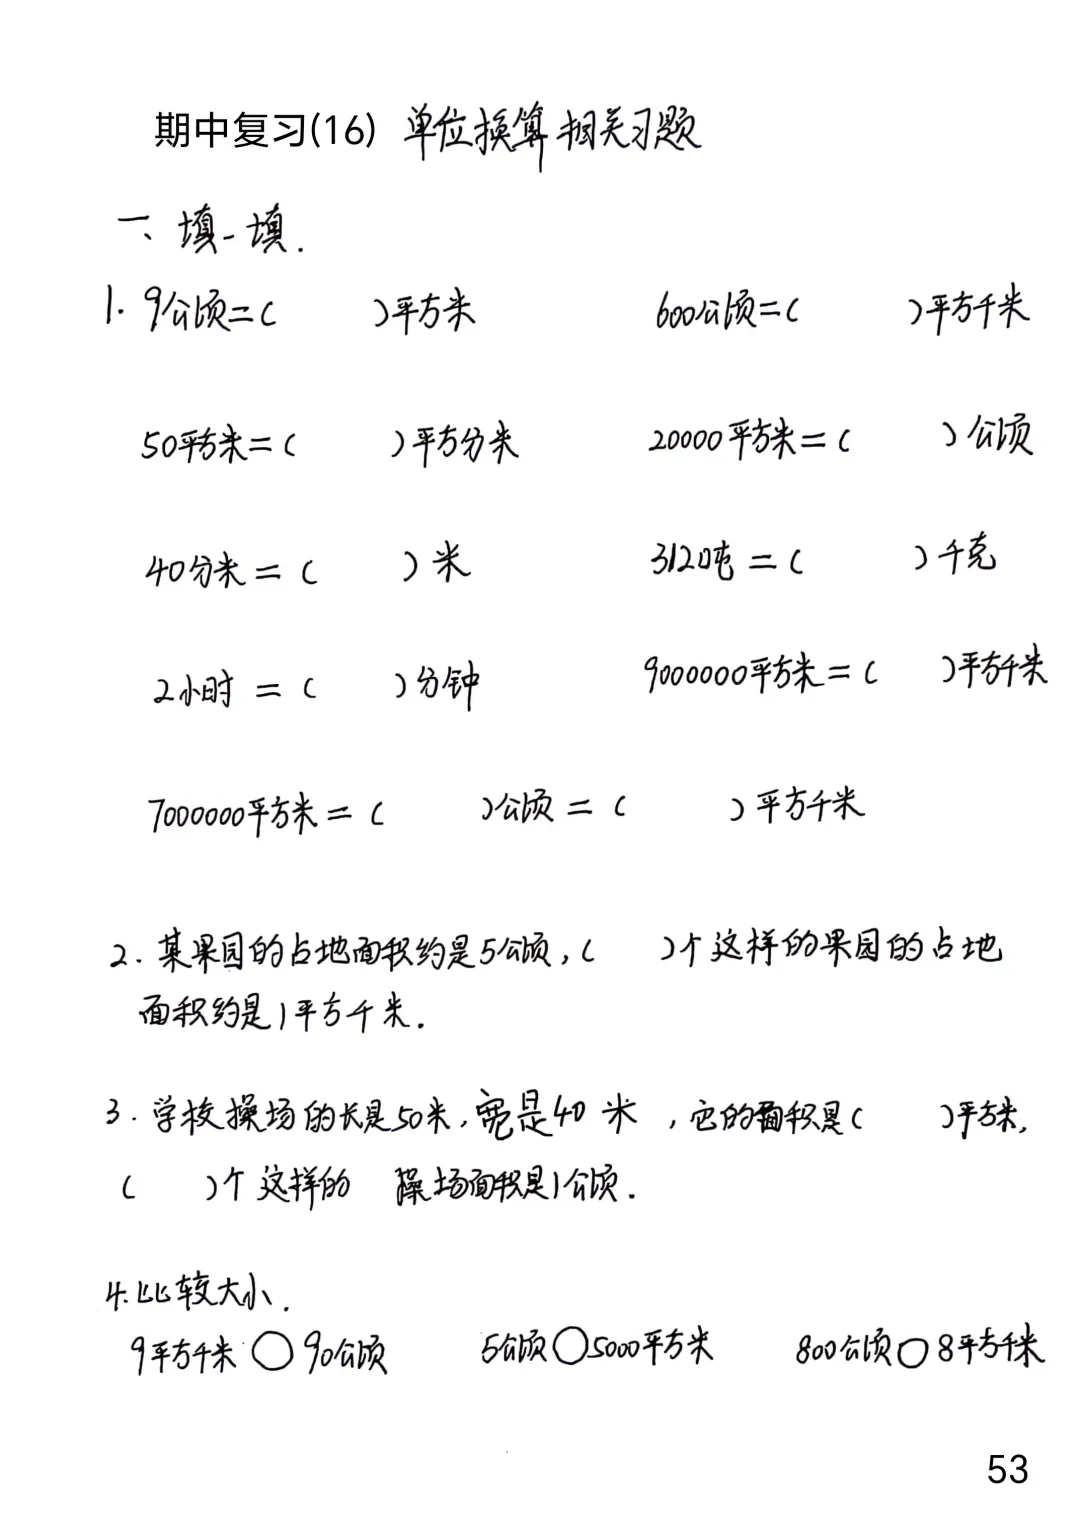 期中复习(16) 单位换算相关习题
一、填一填.
1. 9公顷=( )平方米 600公顷=( )平方千米
50平方米=( )平方分米 20000平方米=( )公顷
40分米=( )米 3120吨=( )千克
2小时=( )分钟 9000000平方米=( )平方千米
7000000平方米=( )公顷=( )平方千米
2. 某果园的占地面积约是5公顷,( )个这样的果园的占地
面积约是1平方千米.
3. 学校操场的长是50米,宽是40米,它的面积是( )平方米,
( )个这样的 操场面积是1公顷.
4.比较大小.
9平方千米○90公顷 5公顷○5000平方米 800公顷○8平方千米
53